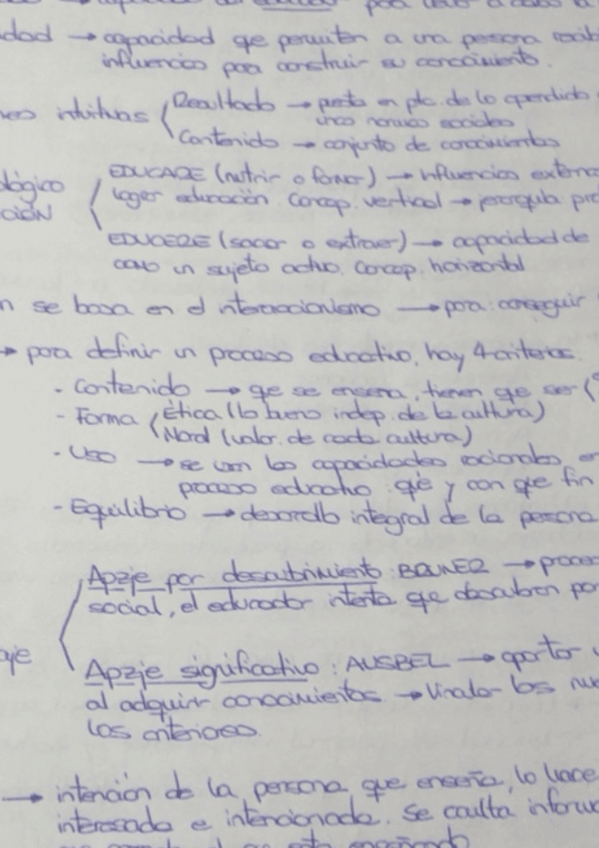 idad → capacidad que permiten a una persona recib
influencias para construir su conocimiento.
nes intuitivas Resultado → puesta en ptc. de lo aprendido
unas normas sociales
Contenido → conjunto de conocimientos
ológico EDUCARE (nutrir o formar) → influencias externa
ción lograr educación. Concep. vertical → jerarquía pro
EDUCERE (sacar o extraer) → capacidad de
como un sujeto activo. Concep. horizontal
n se basa en el interaccionismo → para conseguir
→ para definir un proceso educativo, hay 4 criterios.
- Contenido → que se enseña, tienen que ser (
- Forma Ética (lo bueno indep. de la cultura)
Moral (valor. de cada cultura)
- Uso → se usan las capacidades racionales en
proceso educativo: qué y con qué fin
- Equilibrio → desarrollo integral de la persona
Apzje por descubrimiento: BRUNER → proces
social, el educador intenta que descubran por
aje Apzje significativo: AUSBEL → aportar
al adquirir conocimientos → vincular los nu
los anteriores.
→ intención de la persona que enseña, lo hace
interesada e intencionada. Se oculta inform